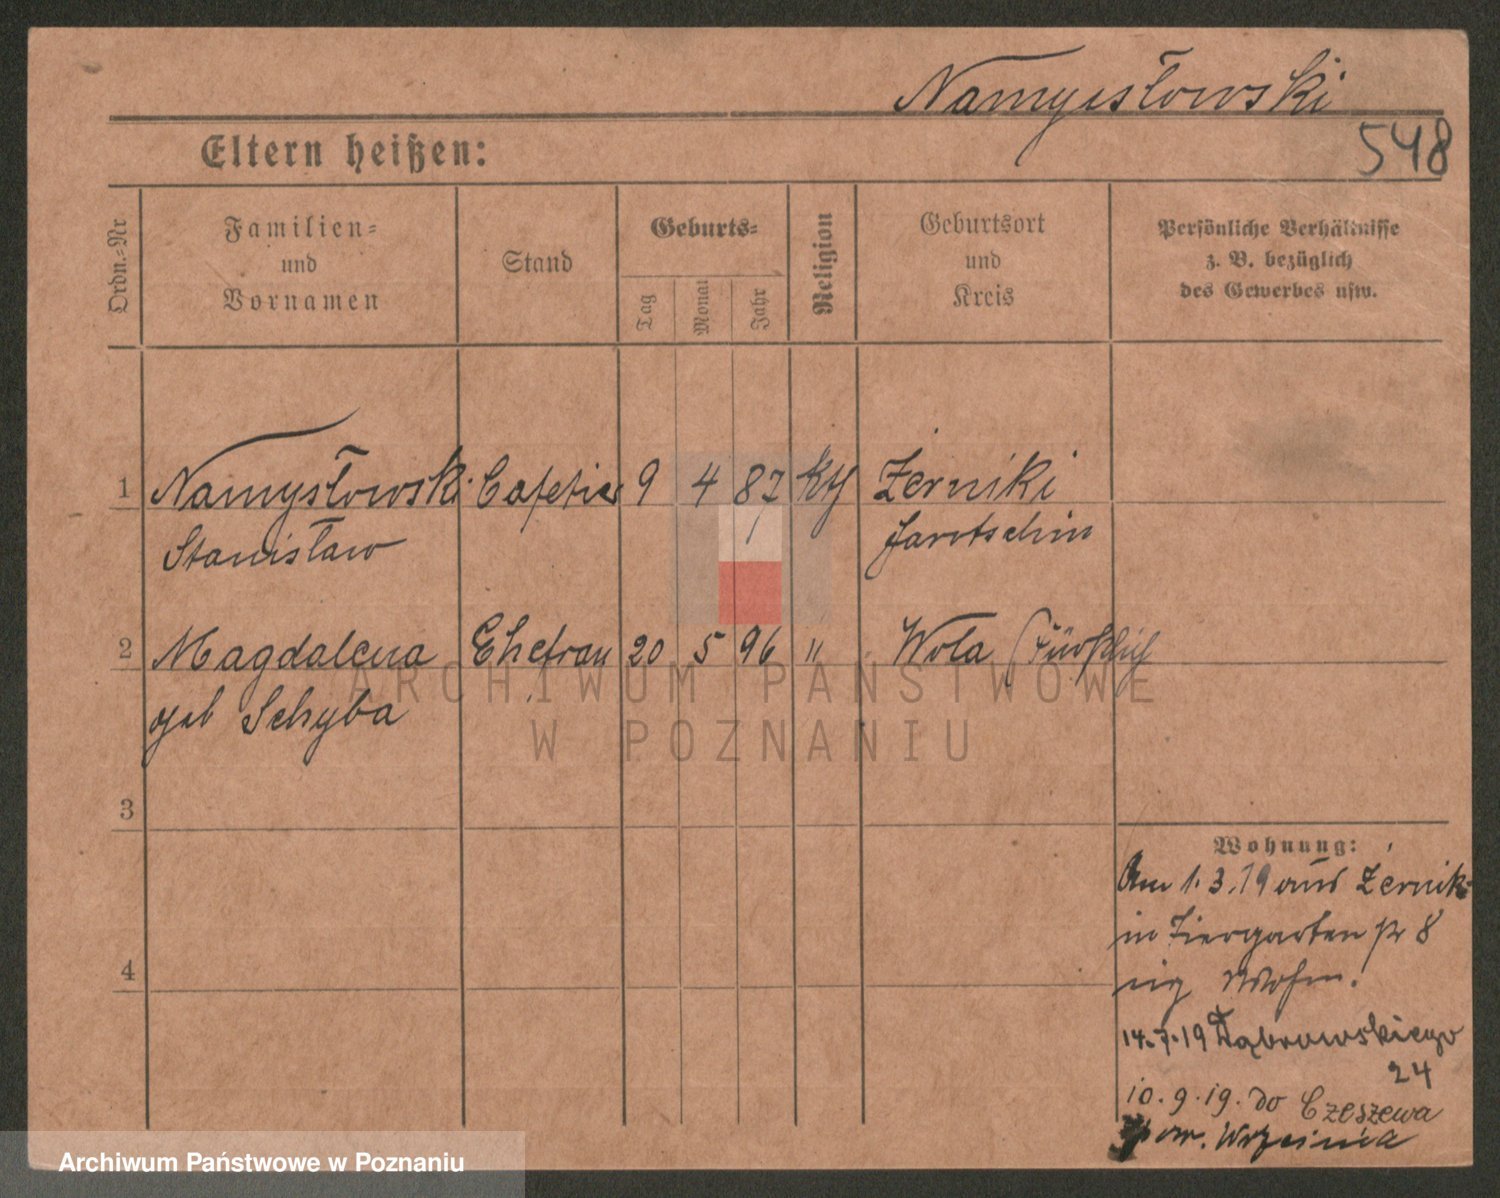 Namysłowski
548
Eltern heißen:
Ordn.-Nr
Familien-
und
Vornamen
Stand
Geburts-
Tag
Monat
Jahr
Religion
Geburtsort
und
Kreis
Persönliche Verhältnisse
z. B. bezüglich
des Gewerbes usw.
1 Namysłowski Cafetier 9 4 87 kth Żerniki
Stanisław Jarotschin
2 Magdalena Ehefrau 20 5 96 " Wola
geb Schyba
3
4
Wohnung:
Am 1.3.19 aus Żerniki
in Tiergarten str 8
eig Wohn.
14.7.19 Dąbrowskiego
24
10.9.19. do Czeszewa
pow. Września
ARCHIWUM PAŃSTWOWE
W POZNANIU
Archiwum Państwowe w Poznaniu